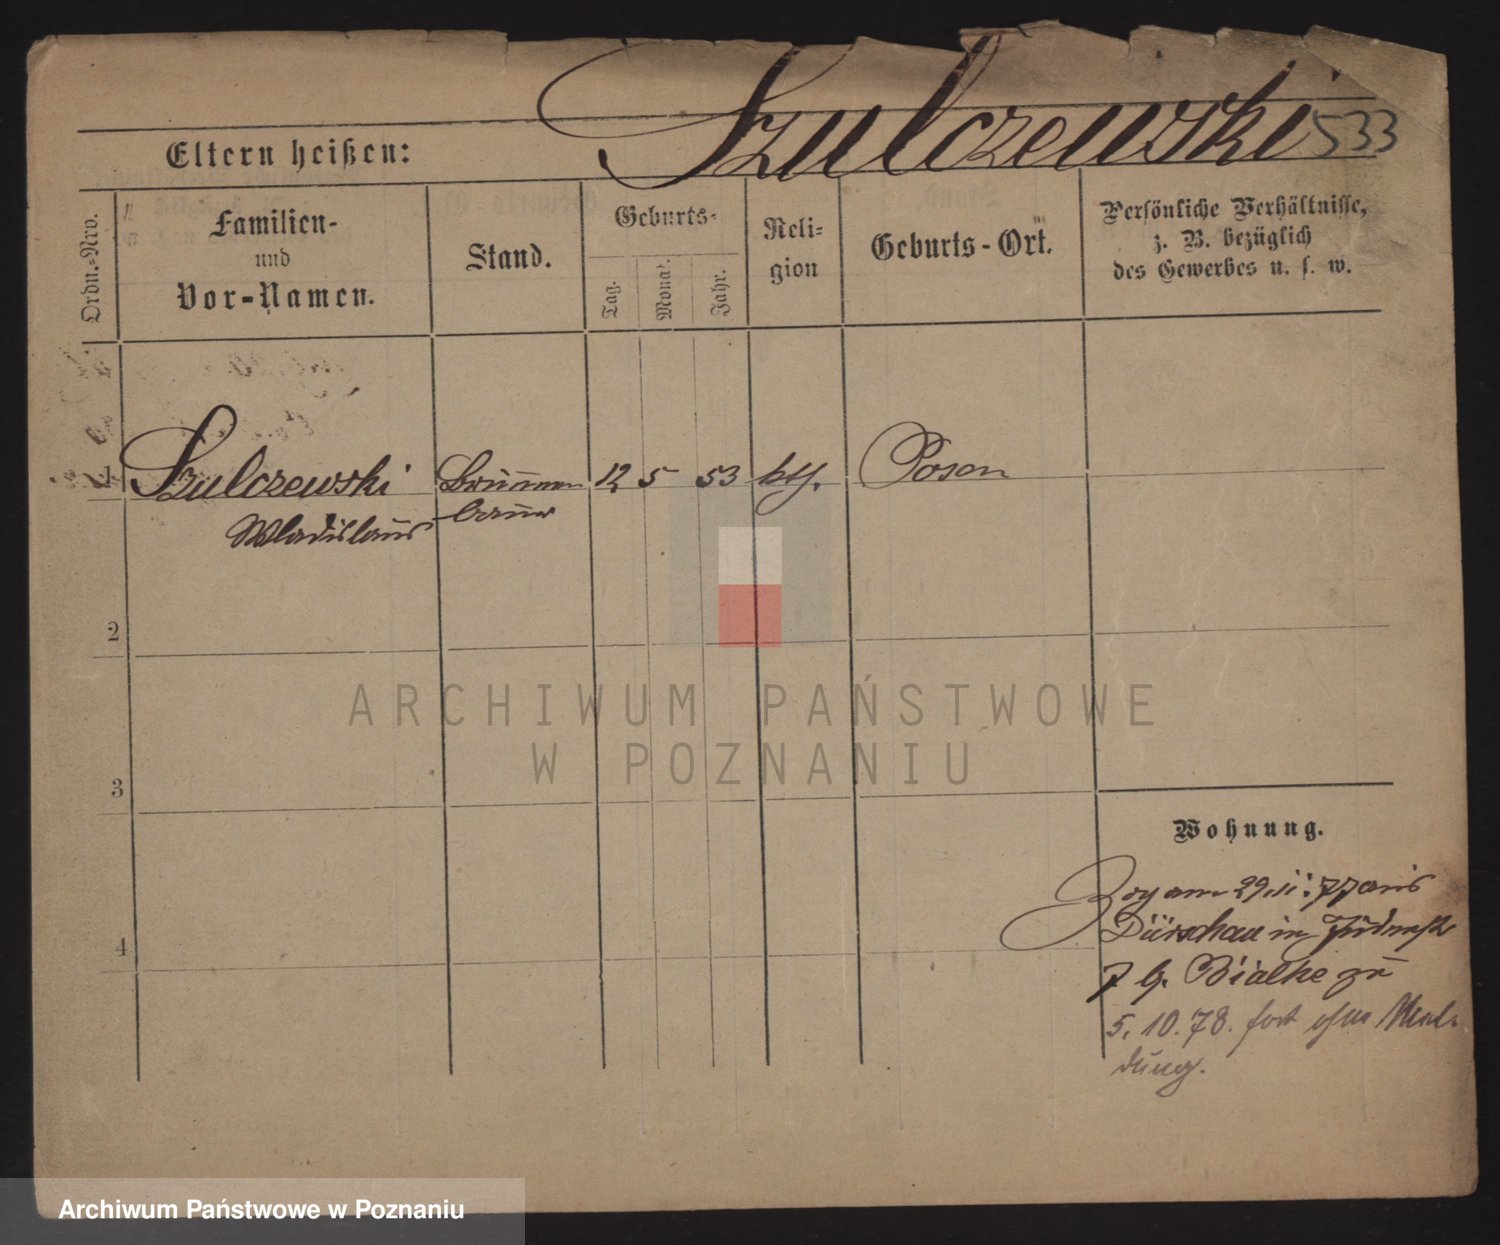 Szulczewski 533
Eltern heißen:
Ordn.-Nro.
Familien-
und
Vor-Namen.
Stand.
Geburts-
Tag.
Monat.
Jahr.
Reli-
gion
Geburts-Ort.
Persönliche Verhältnisse,
z. B. bezüglich
des Gewerbes u. s. w.
1 Szulczewski Brunnen 12 5 53 kth. Posen
Wladislaus bauer
2
3
4
Wohnung.
Zog am 29.11.77 aus
Dirschau in
7 b. Bialke zu
5. 10. 78. fort ohne Mel-
dung.
ARCHIWUM PAŃSTWOWE
W POZNANIU
Archiwum Państwowe w Poznaniu